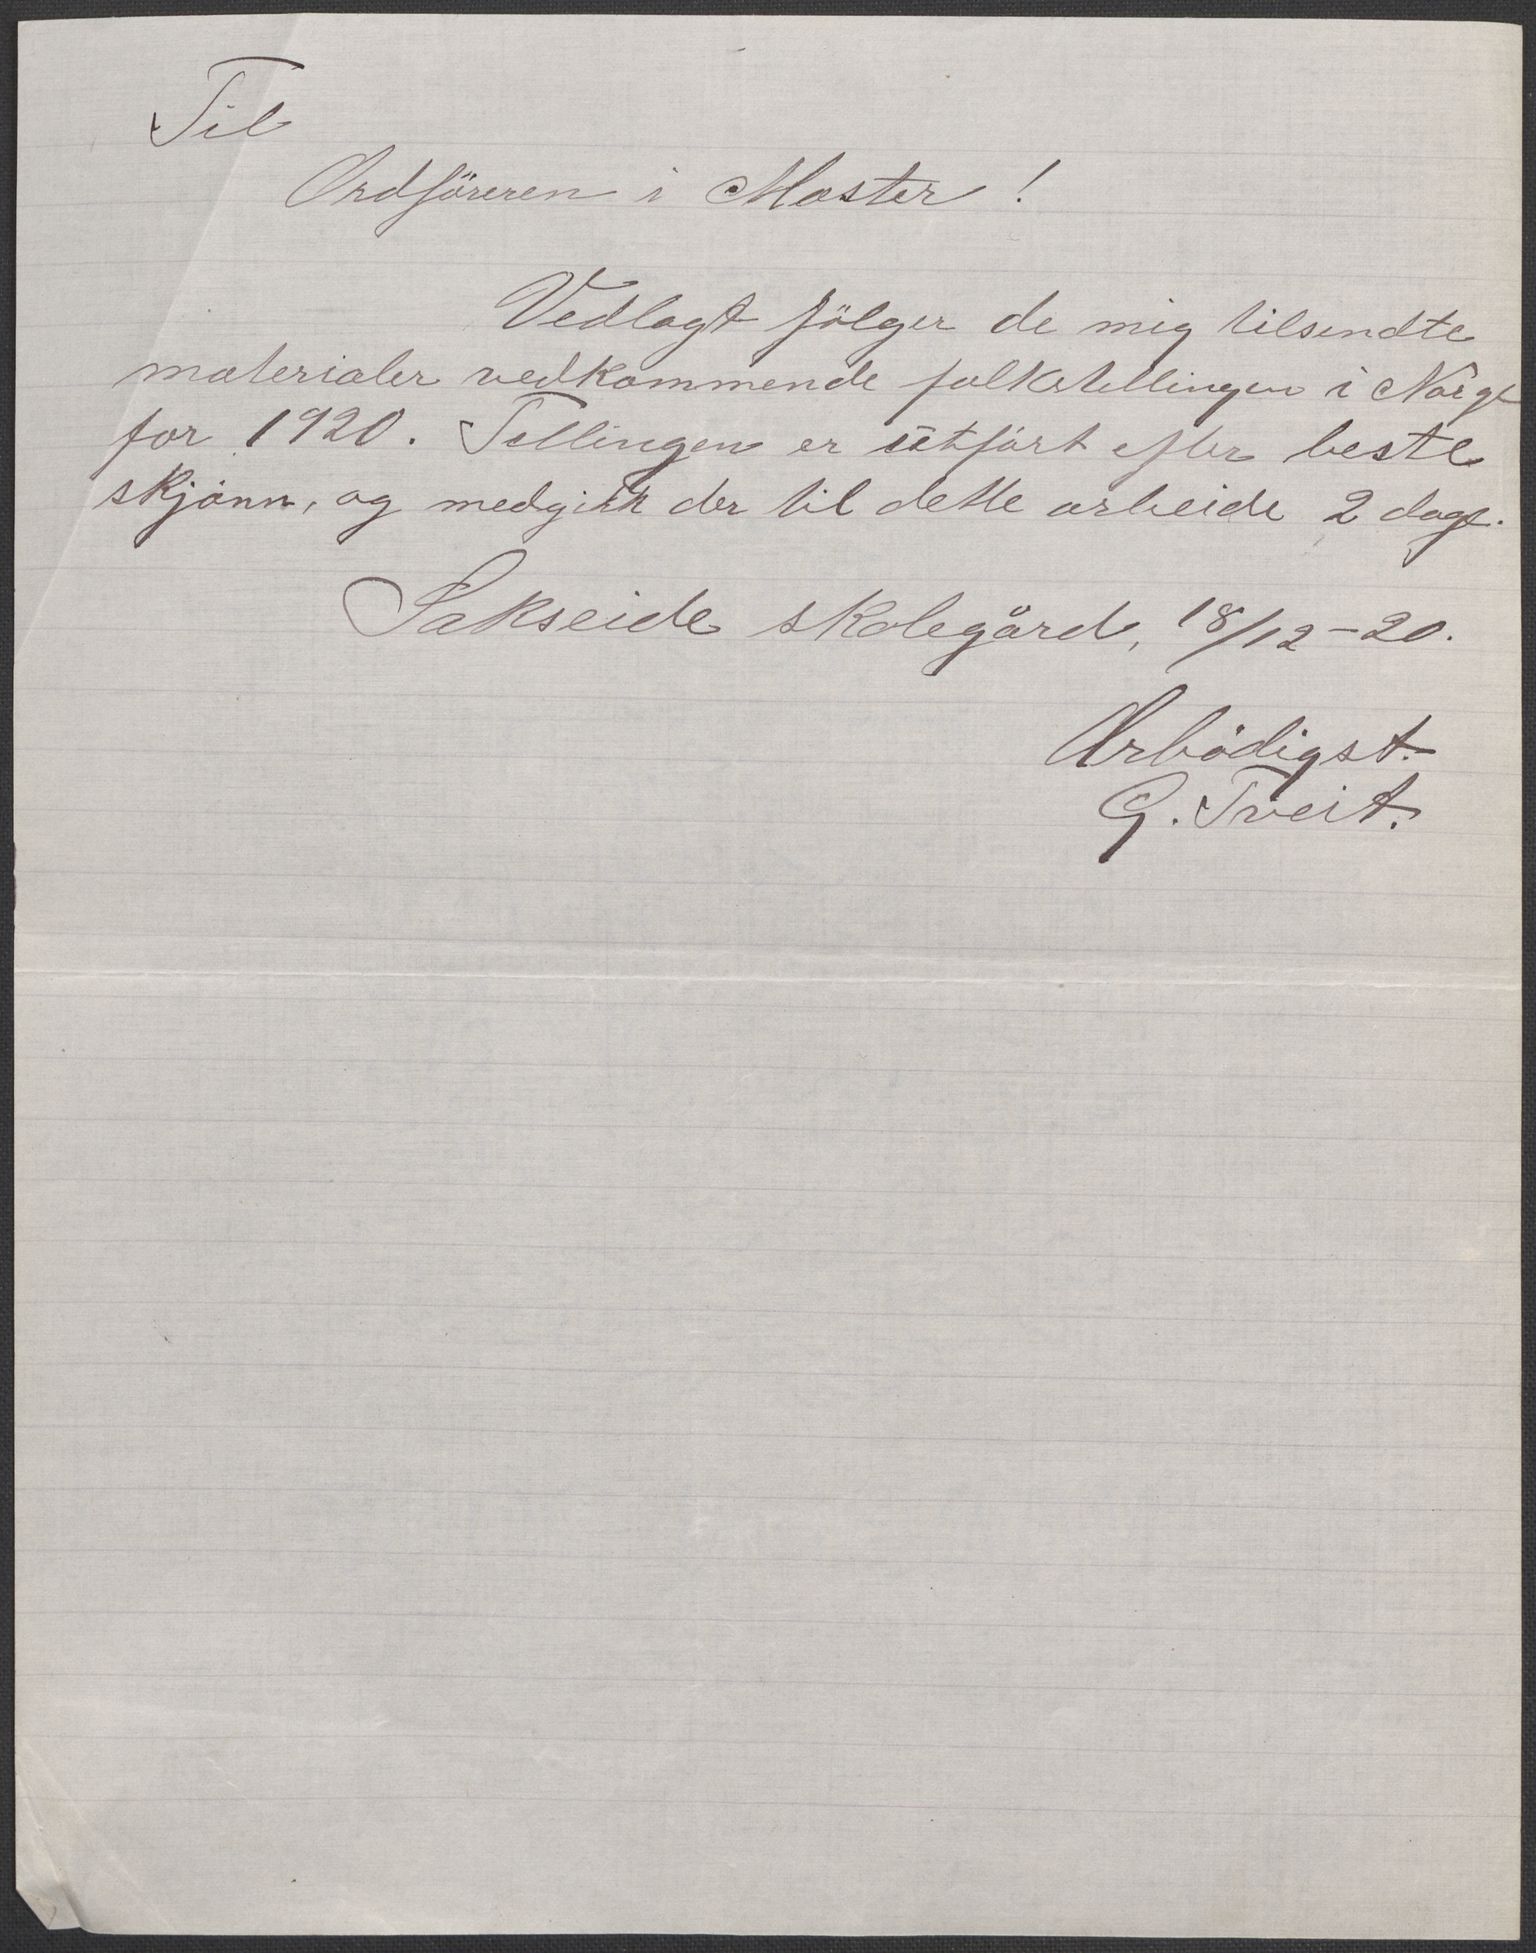 Til
Ordföreren i Moster!
Vedlagt fölger de mig tilsendte
materialer vedkommende folketellingen i Norge
for 1920. Tellingen er utfört efter beste
skjönn, og medgikk der til dette arbeide 2 dage.
Sakseide skolegård, 18/12-20.
Ærbödigst.
G. Tveit.